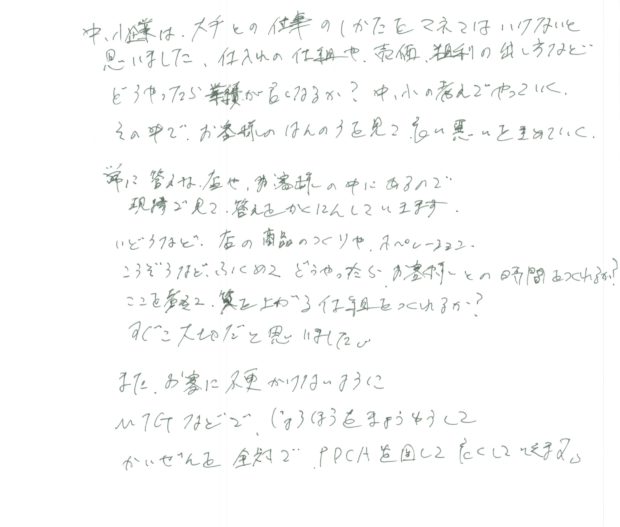 中、小企業は、大手との仕事のしかたをマネてはいけないと
思いました、仕入れの仕組や、売価、粗利の出し方など
どうやったら業績が良くなるか？中、小の考えでやっていく、
その中で、お客様のほんのうを見て、良い思いをまめていく、
常に答えは、店や、お客様の中にあるので
現場で見て、答えをかくにんしていきます、
いどうなど、店の商品のつくりや、オペレーション、
こうぞうなど、ふくめて どうやったら、お客様との時間をつくれるか？
ここを考えて、質を上がる仕組をつくれるか？
すごく大切だと思いました。
また、お客に不便かけないように
MTGなどで、じょうほうをきょうゆうして
かいぜんを 全力で、PDCAを回して良くしていきます。